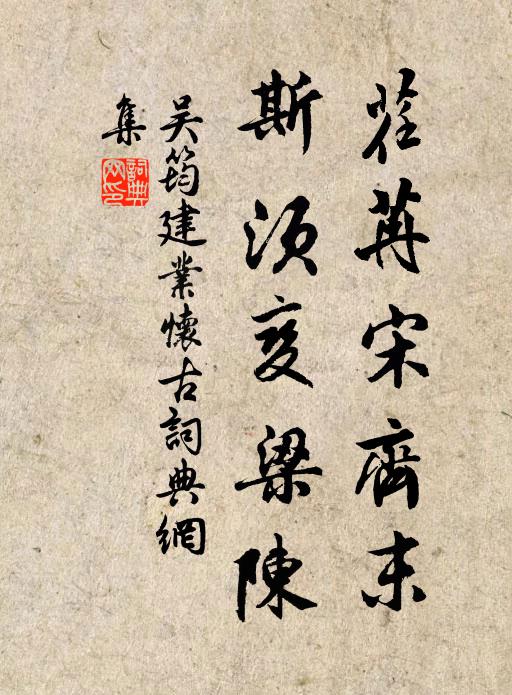 荏苒宋齊末
斯須變梁陳
吴筠建業懷古詞典網
集
詞典
网印